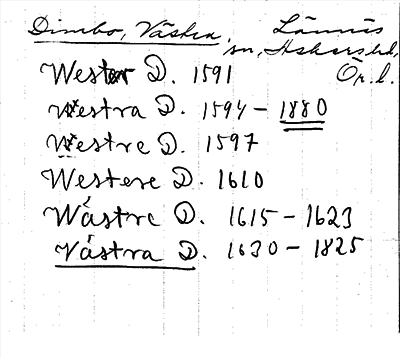 Dimbo, Västra. Lännäs
sn, Askers hd,
Ör. l.
Wester D. 1591
Westra D. 1594 – 1880
Westre D. 1597
Westere D. 1610
Wästre D. 1615 – 1623
Västra D. 1630 – 1825